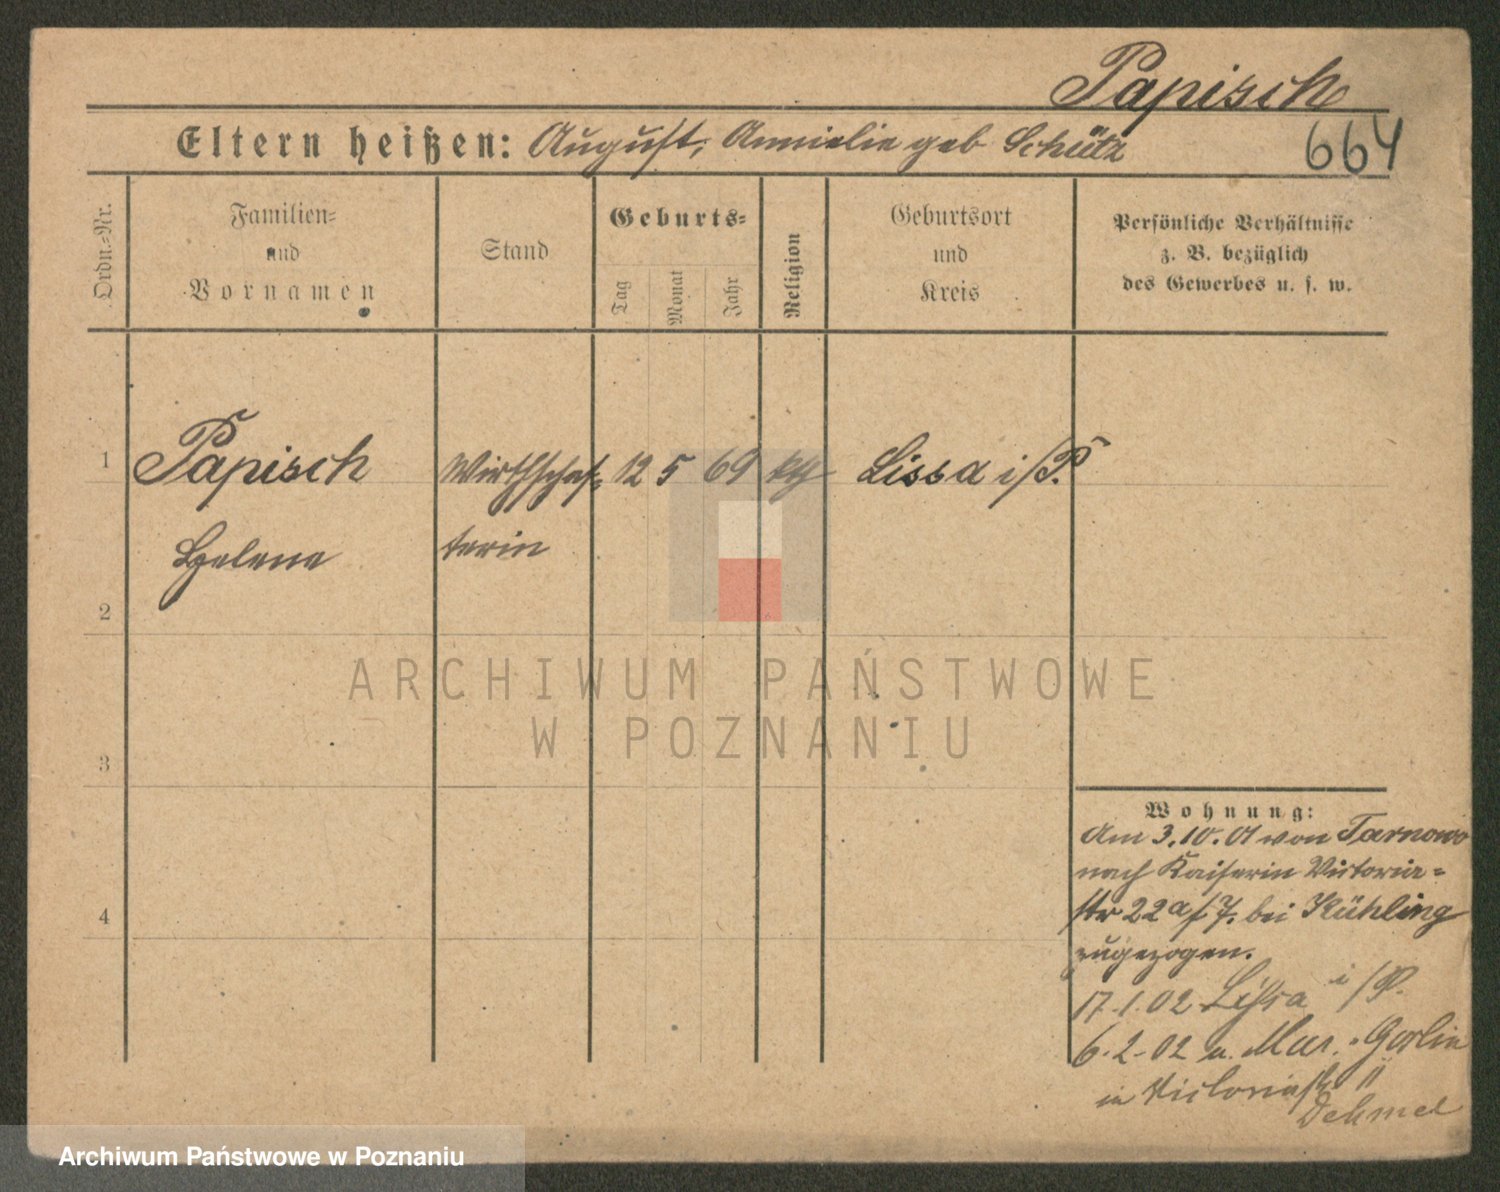 Papisch
664
Eltern heißen: August, Annielie geb Schütz
Ordn.-Nr.
Familien-
und
Vornamen
Stand
Geburts-
Tag
Monat
Jahr
Religion
Geburtsort
und
Kreis
Persönliche Verhältnisse
z. B. bezüglich
des Gewerbes u. s. w.
1 Papisch Wirthschaf- 12 5 69 Lissa i/P.
Helene terin
2
ARCHIWUM PAŃSTWOWE
W POZNANIU
3
Wohnung:
Am 3.10.01 von Tarnowo
nach Kaiserin Victoria-
str 22a/7. bei Kühling
4
zugezogen.
17.1.02 Lissa i/P.
6.2.02 u. Mur. Goslin
in Victoriastr 11
Dehmel
Archiwum Państwowe w Poznaniu